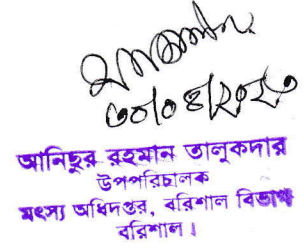 ৩০/০৪/২০২৩
আনিছুর রহমান তালুকদার
উপপরিচালক
মৎস্য অধিদপ্তর, বরিশাল বিভাগ
বরিশাল।